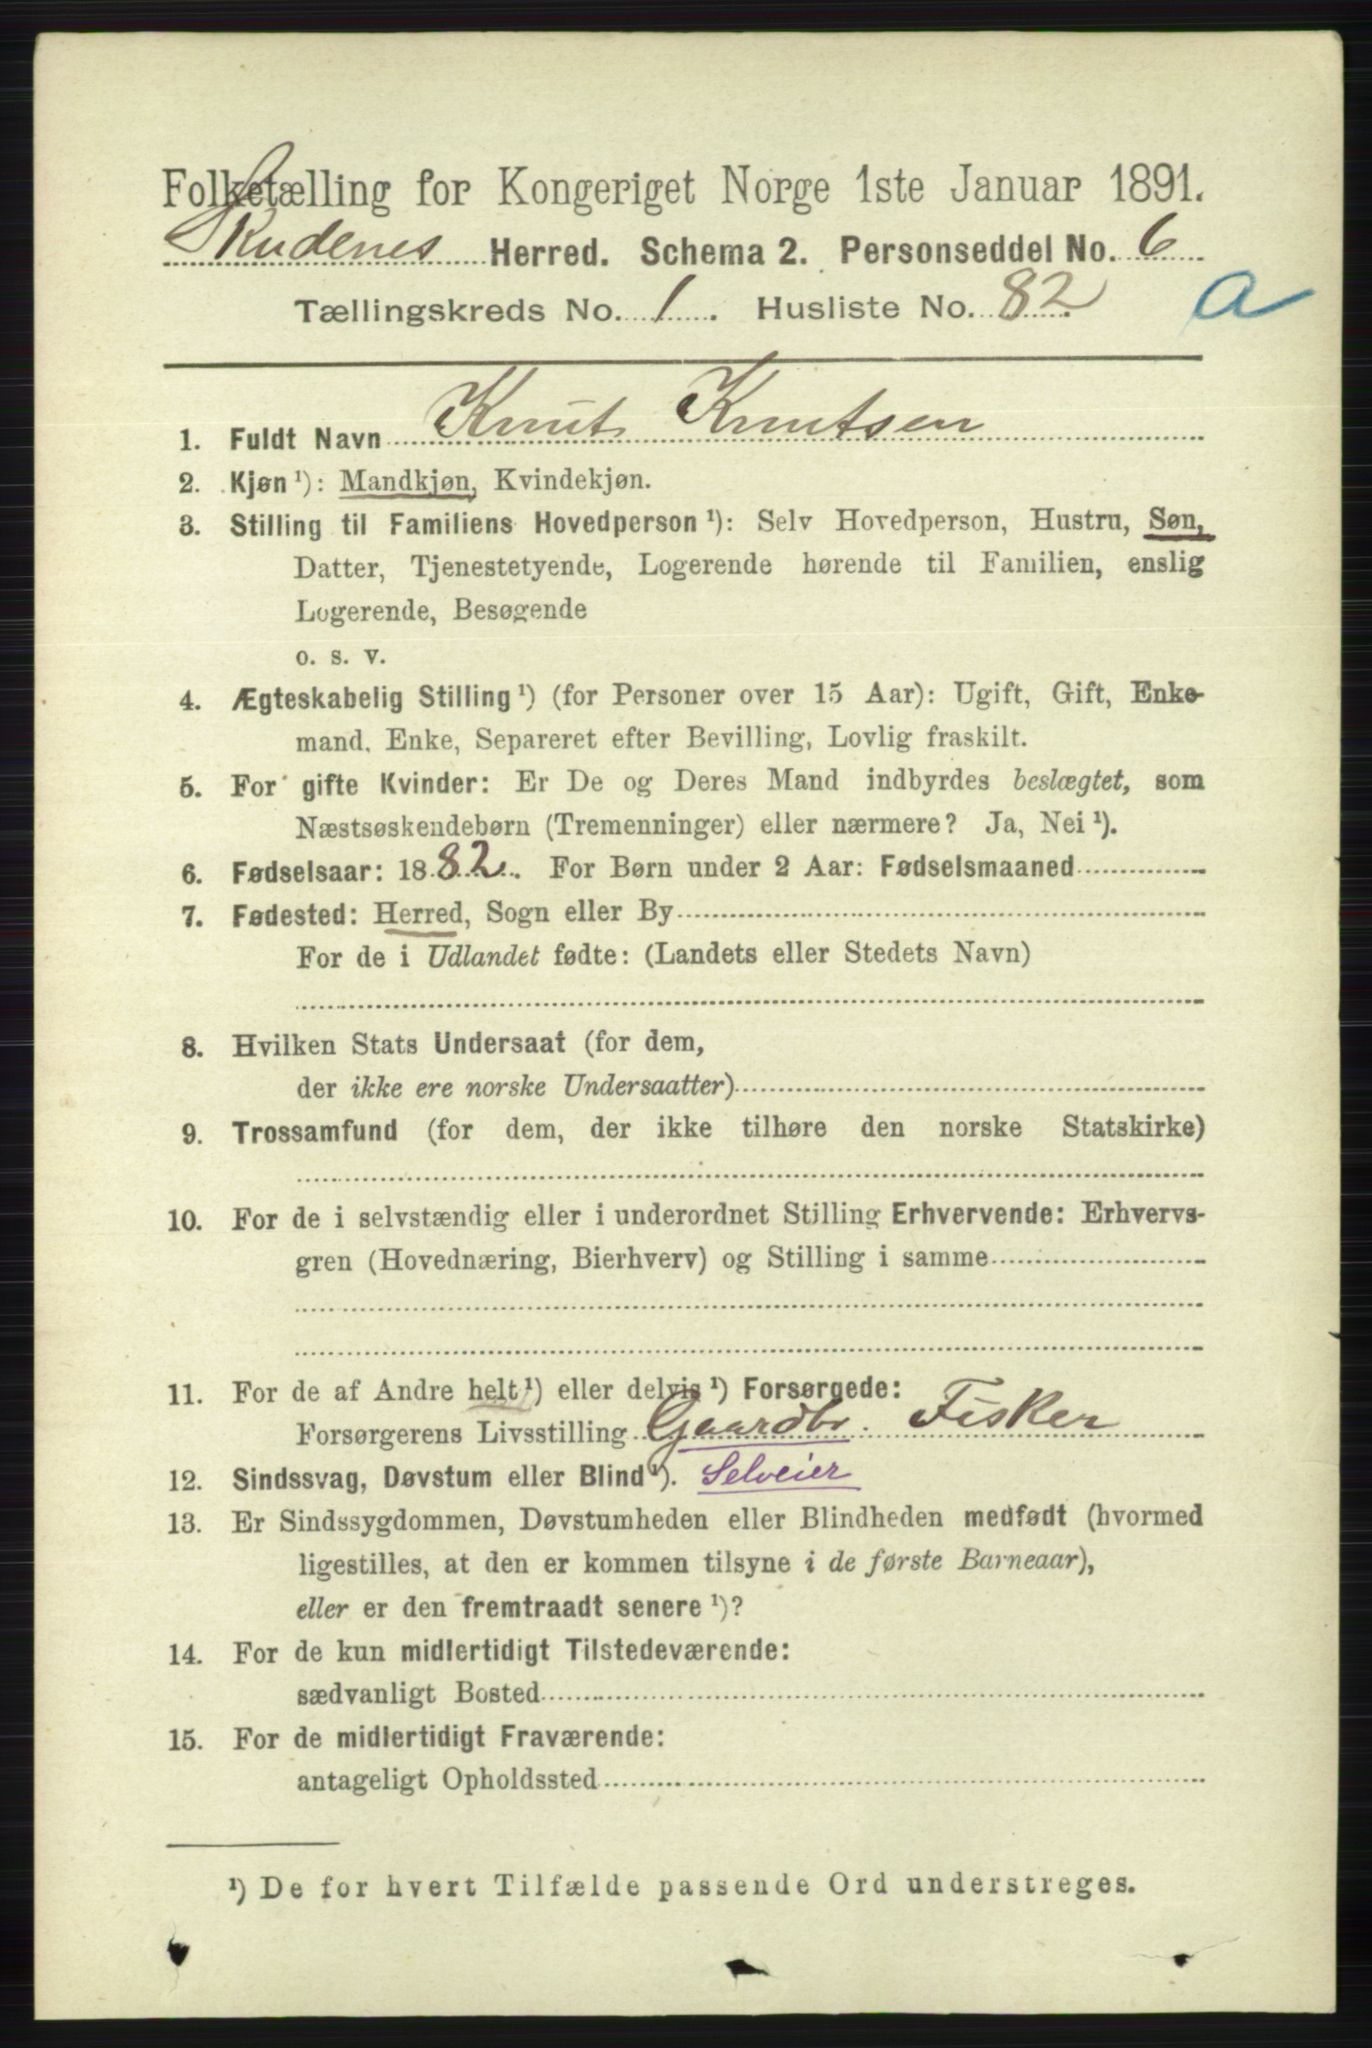 Folketælling for Kongeriget Norge 1ste Januar 1891.
Skudenes Herred. Schema 2. Personseddel No. 6
Tællingskreds No. 1. Husliste No. 82. a
1. Fuldt Navn Knut Knutsen
2. Kjøn ¹): Mandkjøn, Kvindekjøn.
3. Stilling til Familiens Hovedperson ¹): Selv Hovedperson, Hustru, Søn,
Datter, Tjenestetyende, Logerende hørende til Familien, enslig
Logerende, Besøgende
o. s. v.
4. Ægteskabelig Stilling ¹) (for Personer over 15 Aar): Ugift, Gift, Enke-
mand, Enke, Separeret efter Bevilling, Lovlig fraskilt.
5. For gifte Kvinder: Er De og Deres Mand indbyrdes beslægtet, som
Næstsøskendebørn (Tremenninger) eller nærmere? Ja, Nei ¹).
6. Fødselsaar: 1882. For Børn under 2 Aar: Fødselsmaaned
7. Fødested: Herred, Sogn eller By
For de i Udlandet fødte: (Landets eller Stedets Navn)
8. Hvilken Stats Undersaat (for dem,
der ikke ere norske Undersaatter)
9. Trossamfund (for dem, der ikke tilhøre den norske Statskirke)
10. For de i selvstændig eller i underordnet Stilling Erhvervende: Erhvervs-
gren (Hovednæring, Bierhverv) og Stilling i samme
11. For de af Andre helt ¹) eller delvis ¹) Forsørgede:
Forsørgerens Livsstilling Gaardbr. Fisker
12. Sindssvag, Døvstum eller Blind ¹). Selveier
13. Er Sindssygdommen, Døvstumheden eller Blindheden medfødt (hvormed
ligestilles, at den er kommen tilsyne i de første Barneaar),
eller er den fremtraadt senere ¹)?
14. For de kun midlertidigt Tilstedeværende:
sædvanligt Bosted
15. For de midlertidigt Fraværende:
antageligt Opholdssted
¹) De for hvert Tilfælde passende Ord understreges.